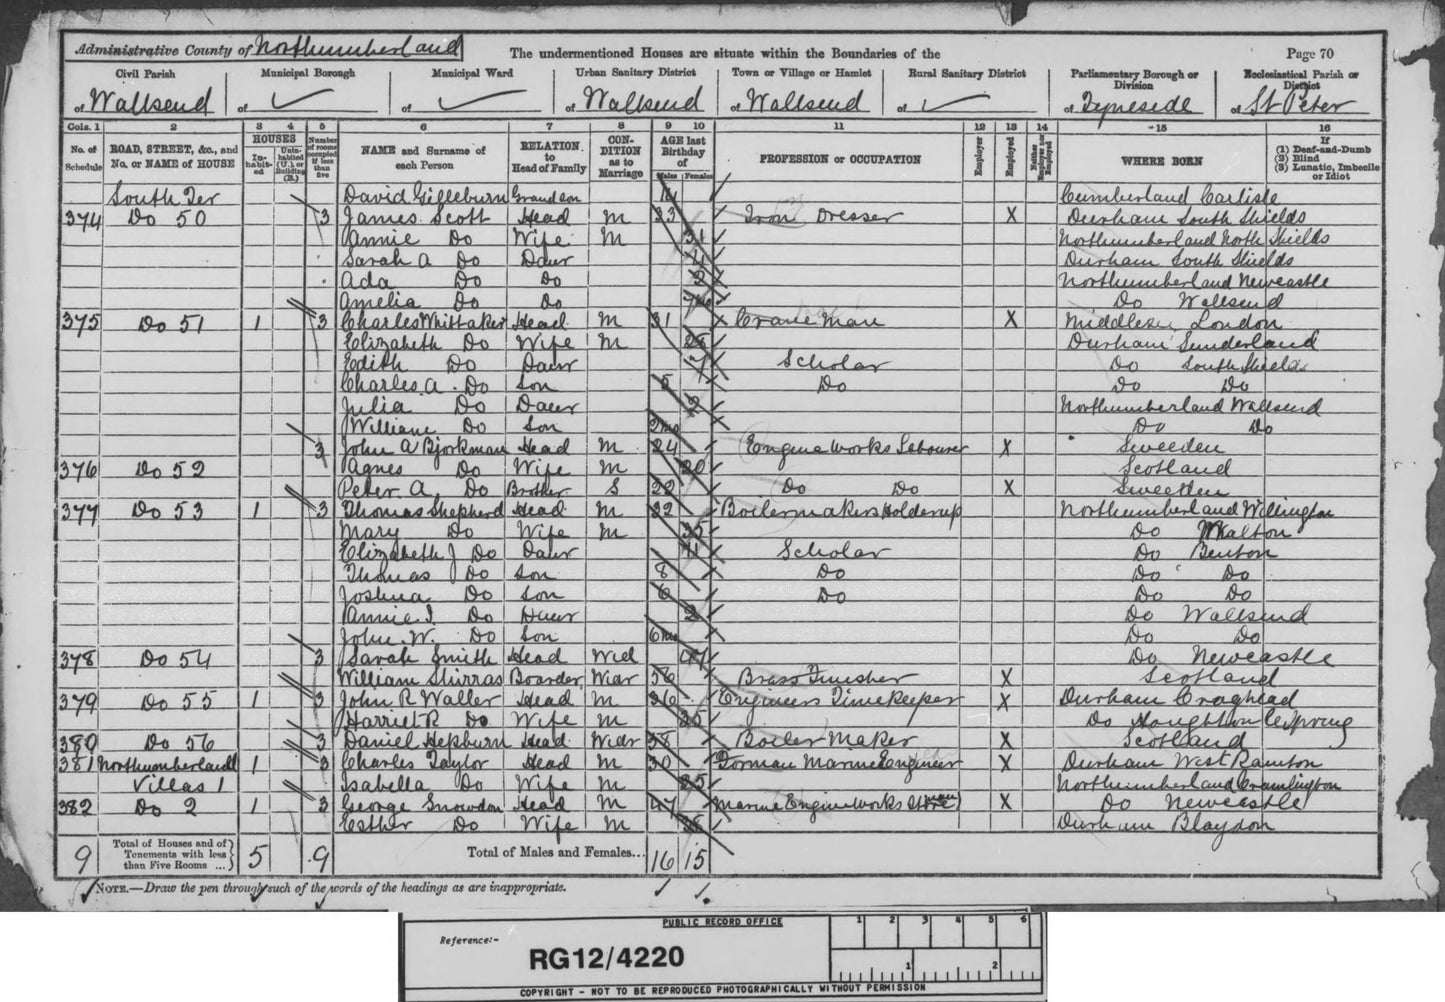 Administrative County of Northumberland The undermentioned Houses are situate within the Boundaries of the Page 70
Civil Parish Municipal Borough Municipal Ward Urban Sanitary District Town or Village or Hamlet Rural Sanitary District Parliamentary Borough or Division Ecclesiastical Parish or District
of Wallsend of of of Wallsend of Wallsend of of Tyneside of St Peter
Cols. 1 2 3 4 5 6 7 8 9 10 11 12 13 14 15 16
No. of Schedule ROAD, STREET, &c., and No. or NAME of HOUSE HOUSES Inhabited Uninhabited (U.) or Building (B.) Number of rooms occupied if less than five NAME and Surname of each Person RELATION to Head of Family CONDITION as to Marriage AGE last Birthday of Males Females PROFESSION or OCCUPATION Employer Employed Neither Employer nor Employed WHERE BORN If (1) Deaf-and-Dumb (2) Blind (3) Lunatic, Imbecile or Idiot
South Ter David Gilleburn Grandson Cumberland Carlisle
374 Do 50 3 James Scott Head M 33 Iron Dresser X Durham South Shields
Annie Do Wife M 31 Northumberland North Shields
Sarah A Do Daur 4 Durham South Shields
Ada Do Do 2 Northumberland Newcastle
Amelia Do Do 7mo Do Wallsend
375 Do 51 1 3 Charles Whittaker Head M 31 Crane Man X Middlesex London
Elizabeth Do Wife M 28 Durham Sunderland
Edith Do Daur 7 Scholar Do South Shields
Charles A. Do Son 5 Do Do Do
Julia Do Daur 2 Northumberland Wallsend
William Do Son 2mo Do Do
3 John A Bjorkman Head M 24 Engine Works Labourer X Sweeden
376 Do 52 Agnes Do Wife M 20 Scotland
Peter A. Do Brother S 22 Do Do X Sweeden
377 Do 53 1 3 Thomas Shepherd Head M 32 Boilermakers Holderup Northumberland Willington
Mary Do Wife M 35 Do Whalton
Elizabeth J Do Daur 11 Scholar Do Benton
Thomas Do Son 8 Do Do Do
Joshua Do Son 6 Do Do Do
Annie I. Do Daur 2 Do Wallsend
John. W. Do Son 6mo Do Do
378 Do 54 3 Sarah Smith Head Wid 47 Do Newcastle
William Shirras Boarder Widr 56 Brass Finisher X Scotland
379 Do 55 1 3 John R Waller Head M 36 Engineers Timekeeper X Durham Craghead
Harriet R Do Wife M 35 Do Houghton le Spring
380 Do 56 3 Daniel Hepburn Head Widr 38 Boiler Maker X Scotland
381 Northumberland 1 3 Charles Taylor Head M 30 Forman Marine Engineer X Durham West Rainton
Villas 1 Isabella Do Wife M 25 Northumberland Cramlington
382 Do 2 1 3 George Snowdon Head M 47 Marine Engineworks Storeman X Do Newcastle
Esther Do Wife M 38 Durham Blaydon
9 Total of Houses and of Tenements with less than Five Rooms ... 5 9 Total of Males and Females... 16 15
NOTE.—Draw the pen through such of the words of the headings as are inappropriate.
PUBLIC RECORD OFFICE 1 2 3 4 5 6
Reference:-
RG12/4220 1 2
COPYRIGHT - NOT TO BE REPRODUCED PHOTOGRAPHICALLY WITHOUT PERMISSION